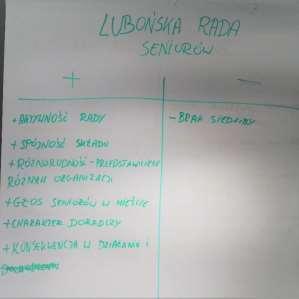 LUBOŃSKA RADA
SENIORÓW
+ -
+ AKTYWNOŚĆ RADY
- BRAK SIEDZIBY
+ SPÓJNOŚĆ SKŁADU
+ RÓŻNORODNOŚĆ - PRZEDSTAWICIELE
RÓŻNYCH ORGANIZACJI
+ GŁOS SENIORÓW W MIEŚCIE
+ CHARAKTER DORADCZY
+ KONSEKWENCJA W DZIAŁANIU I